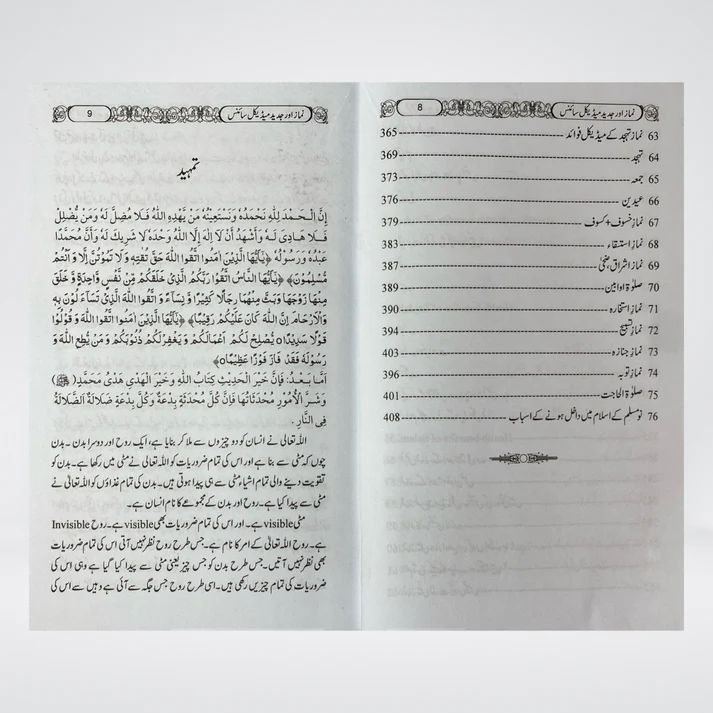 نماز اور جدید میڈیکل سائنس 8
63 نماز تہجد کے میڈیکل فوائد 365
64 تہجد 369
65 جمعہ 373
66 عیدین 376
67 نماز خسوف + کسوف 379
68 نماز استسقاء 383
69 نماز اشراق ضحیٰ 387
70 صلوٰۃ اوابین 389
71 نماز استخارہ 390
72 نماز تسبیح 394
73 نماز جنازہ 403
74 نماز توبہ 396
75 صلوٰۃ الحاجت 401
76 نو مسلم کے اسلام میں داخل ہونے کے اسباب 408
نماز اور جدید میڈیکل سائنس 9
تمہید
إِنَّ الْحَمْدَ لِلَّهِ نَحْمَدُهُ وَنَسْتَعِينُهُ مَنْ يَّهْدِهِ اللَّهُ فَلَا مُضِلَّ لَهُ وَمَنْ يُّضْلِلْ
فَلَا هَادِىَ لَهُ وَأَشْهَدُ أَنْ لَّا إِلٰهَ إِلَّا اللَّهُ وَحْدَهُ لَا شَرِيكَ لَهُ وَأَنَّ مُحَمَّدًا
عَبْدُهُ وَرَسُولُهُ ﴿يٰٓأَيُّهَا الَّذِيْنَ اٰمَنُوا اتَّقُوا اللَّهَ حَقَّ تُقٰتِهٖ وَلَا تَمُوْتُنَّ اِلَّا وَاَنْتُمْ
مُّسْلِمُوْنَ﴾ ﴿يٰٓأَيُّهَا النَّاسُ اتَّقُوْا رَبَّكُمُ الَّذِىْ خَلَقَكُمْ مِّنْ نَّفْسٍ وَّاحِدَةٍ وَّ خَلَقَ
مِنْهَا زَوْجَهَا وَبَثَّ مِنْهُمَا رِجَالًا كَثِيْرًا وَّ نِسَآءً وَ اتَّقُوا اللَّهَ الَّذِىْ تَسَآءَ لُوْنَ بِهٖ
وَالْاَرْحَامَ اِنَّ اللَّهَ كَانَ عَلَيْكُمْ رَقِيْبًا﴾ ﴿يٰٓأَيُّهَا الَّذِيْنَ اٰمَنُوا اتَّقُوا اللَّهَ وَ قُوْلُوْا
قَوْلًا سَدِيْدًا٥ يُّصْلِحْ لَكُمْ اَعْمَالَكُمْ وَيَغْفِرْ لَكُمْ ذُنُوْبَكُمْ وَمَنْ يُّطِعِ اللَّهَ وَ
رَسُوْلَهٗ فَقَدْ فَازَ فَوْزًا عَظِيْمًا٥﴾
اَمَّا بَعْدُ: فَإِنَّ خَيْرَ الْحَدِيْثِ كِتَابُ اللَّهِ وَخَيْرَ الْهَدْىِ هَدْىُ مُحَمَّدٍ (ﷺ)
وَشَرَّ الْأُمُوْرِ مُحْدَثَاتُهَا فَإِنَّ كُلَّ مُحْدَثَةٍ بِدْعَةٌ وَكُلَّ بِدْعَةٍ ضَلَالَةٌ اَلضَّلَالَةُ
فِى النَّارِ .
اللہ تعالیٰ نے انسان کو دو چیزوں سے ملا کر بنایا ہے، ایک روح اور دوسرا بدن۔ بدن
چوں کہ مٹی سے بنا ہے اور اس کی تمام ضروریات کو اللہ تعالیٰ نے مٹی میں رکھا ہے۔ بدن کو
تقویت دینے والی تمام اشیاء مٹی سے ہی پیدا ہوتی ہیں۔ بدن کی تمام غذاؤں کو اللہ تعالیٰ نے
مٹی سے پیدا کیا ہے۔ روح اور بدن کے مجموعے کا نام انسان ہے۔
مٹی visible ہے۔ اور اس کی تمام ضروریات بھی visible ہے۔ روح Invisible
ہے۔ روح اللہ تعالیٰ کے امر کا نام ہے۔ جس طرح روح نظر نہیں آتی اس کی تمام ضروریات
بھی نظر نہیں آتیں۔ جس طرح بدن کو جس چیز یعنی مٹی سے پیدا کیا گیا ہے وہی اس کی
ضروریات کی تمام چیزیں رکھی ہیں۔ اسی طرح روح جس جگہ سے آئی ہے وہیں سے اس کی